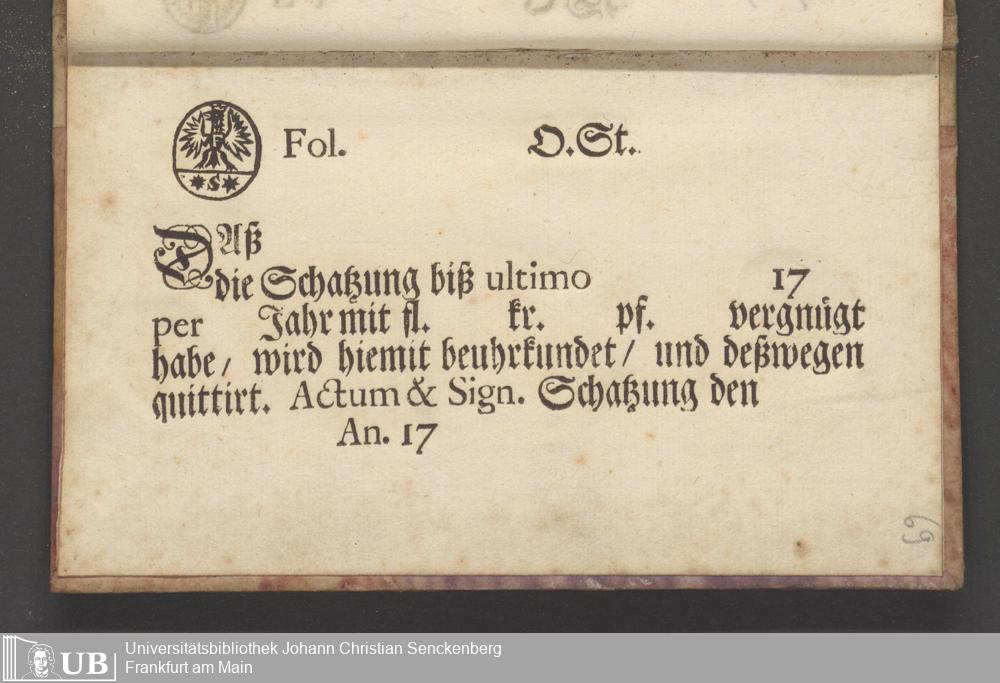 Fol. O.St.
*S*
DAß
die Schatzung biß ultimo 17
per Jahr mit fl. kr. pf. vergnügt
habe / wird hiemit beuhrkundet / und deßwegen
quittirt. Actum & Sign. Schatzung den
An. 17
69
UB
Universitätsbibliothek Johann Christian Senckenberg
Frankfurt am Main